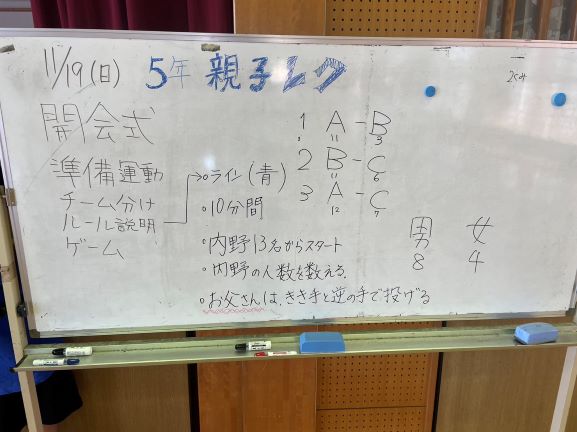 11/19(日) 5年 親子レク
開会式
準備運動
チーム分け
ルール説明
ゲーム
・ライン(青)
・10分間
・内野13名からスタート
・内野の人数を数える
・お父さんは、きき手と逆の手で投げる
1 A - B
11 3
2 B - C
11 6
3 A - C
12 7
男 女
8 4